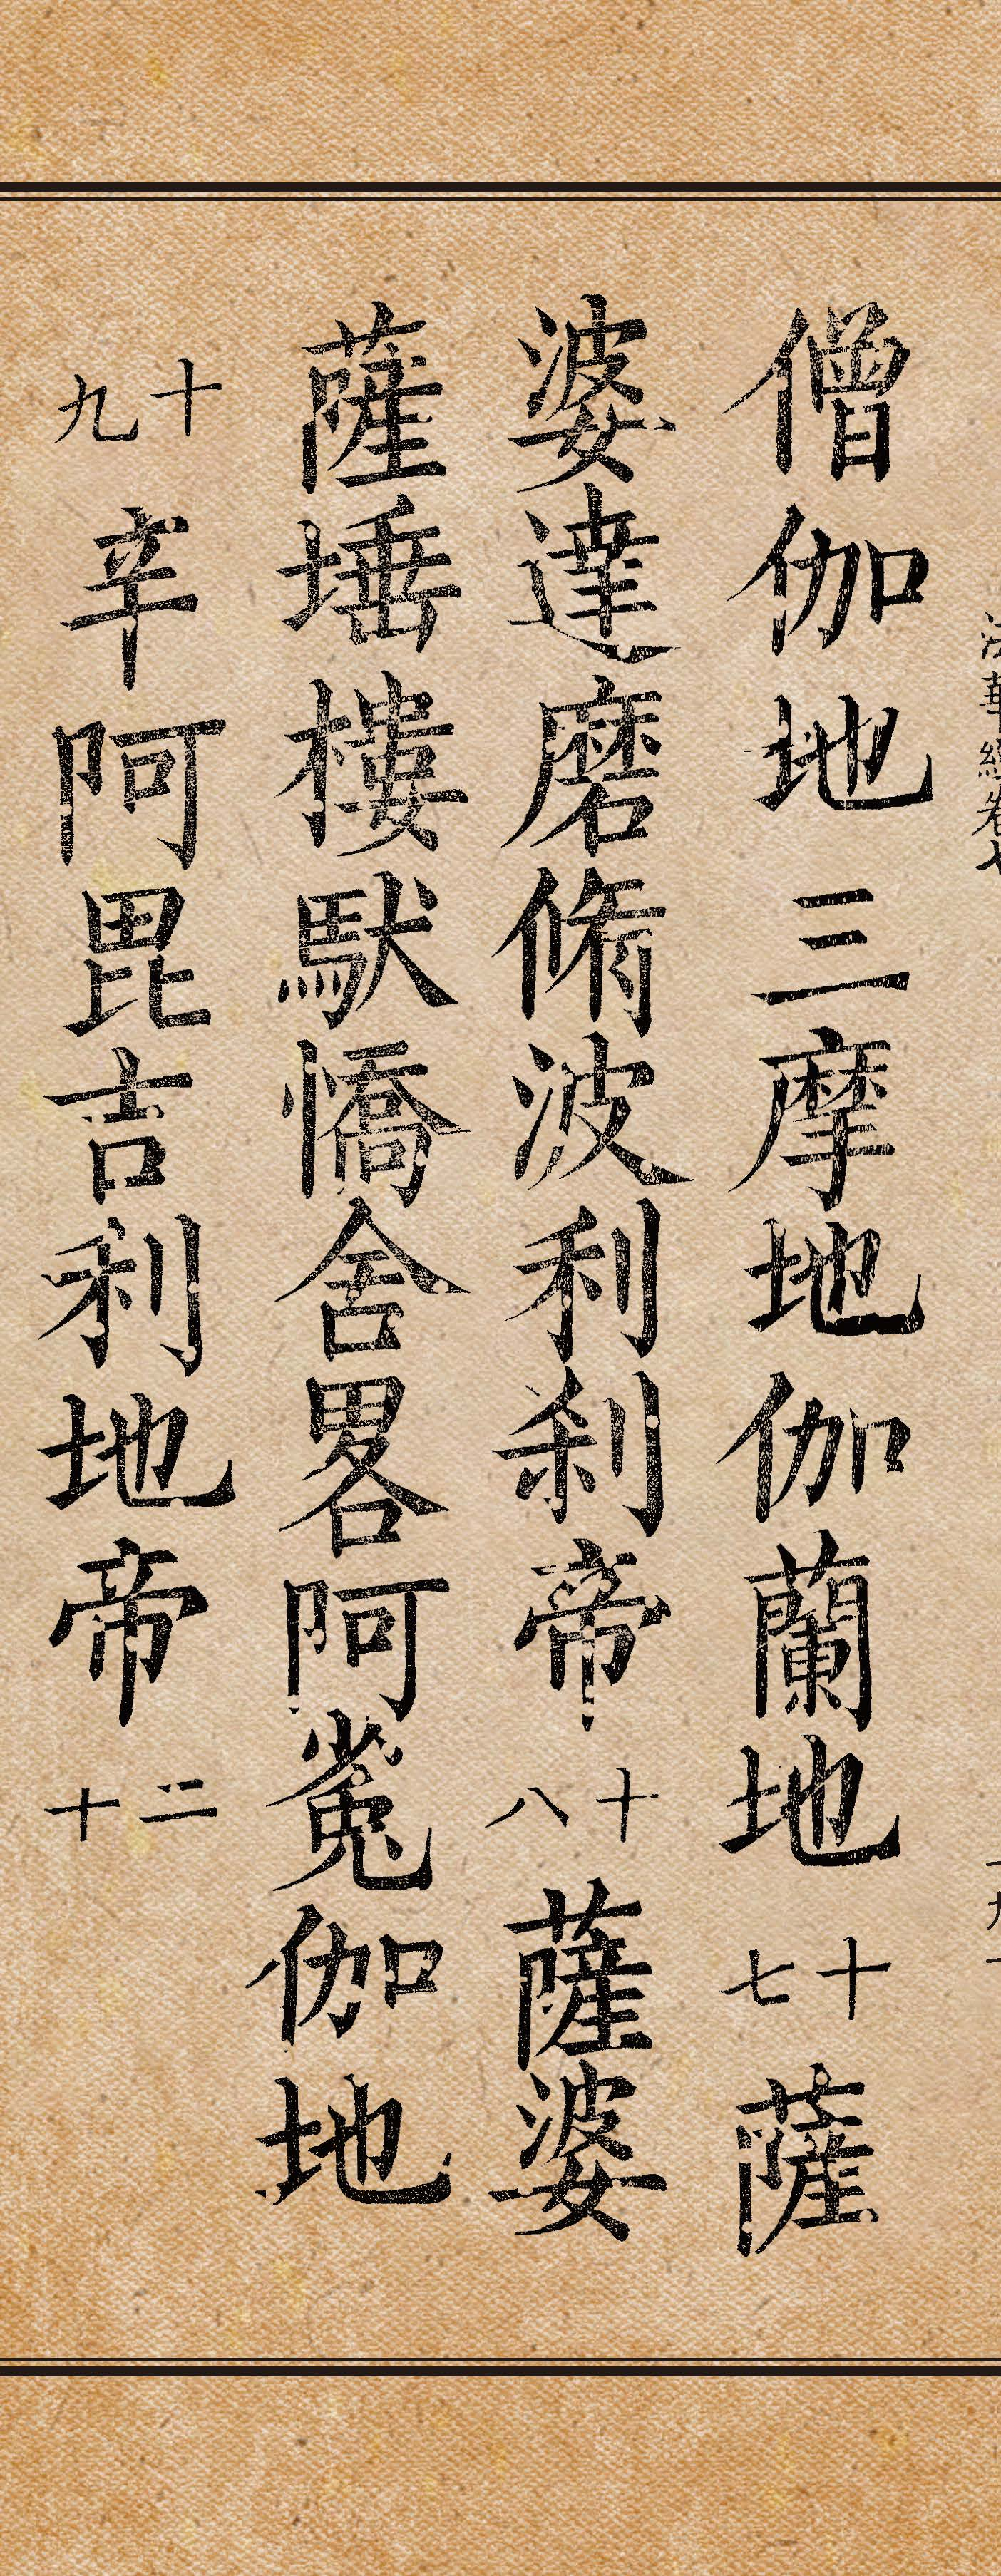 法華經卷七
僧伽地三摩地伽蘭地十七薩
婆達磨脩波利刹帝十八薩婆
薩埵樓馱憍舍畧阿㝹伽地
十九辛阿毘吉利地帝二十